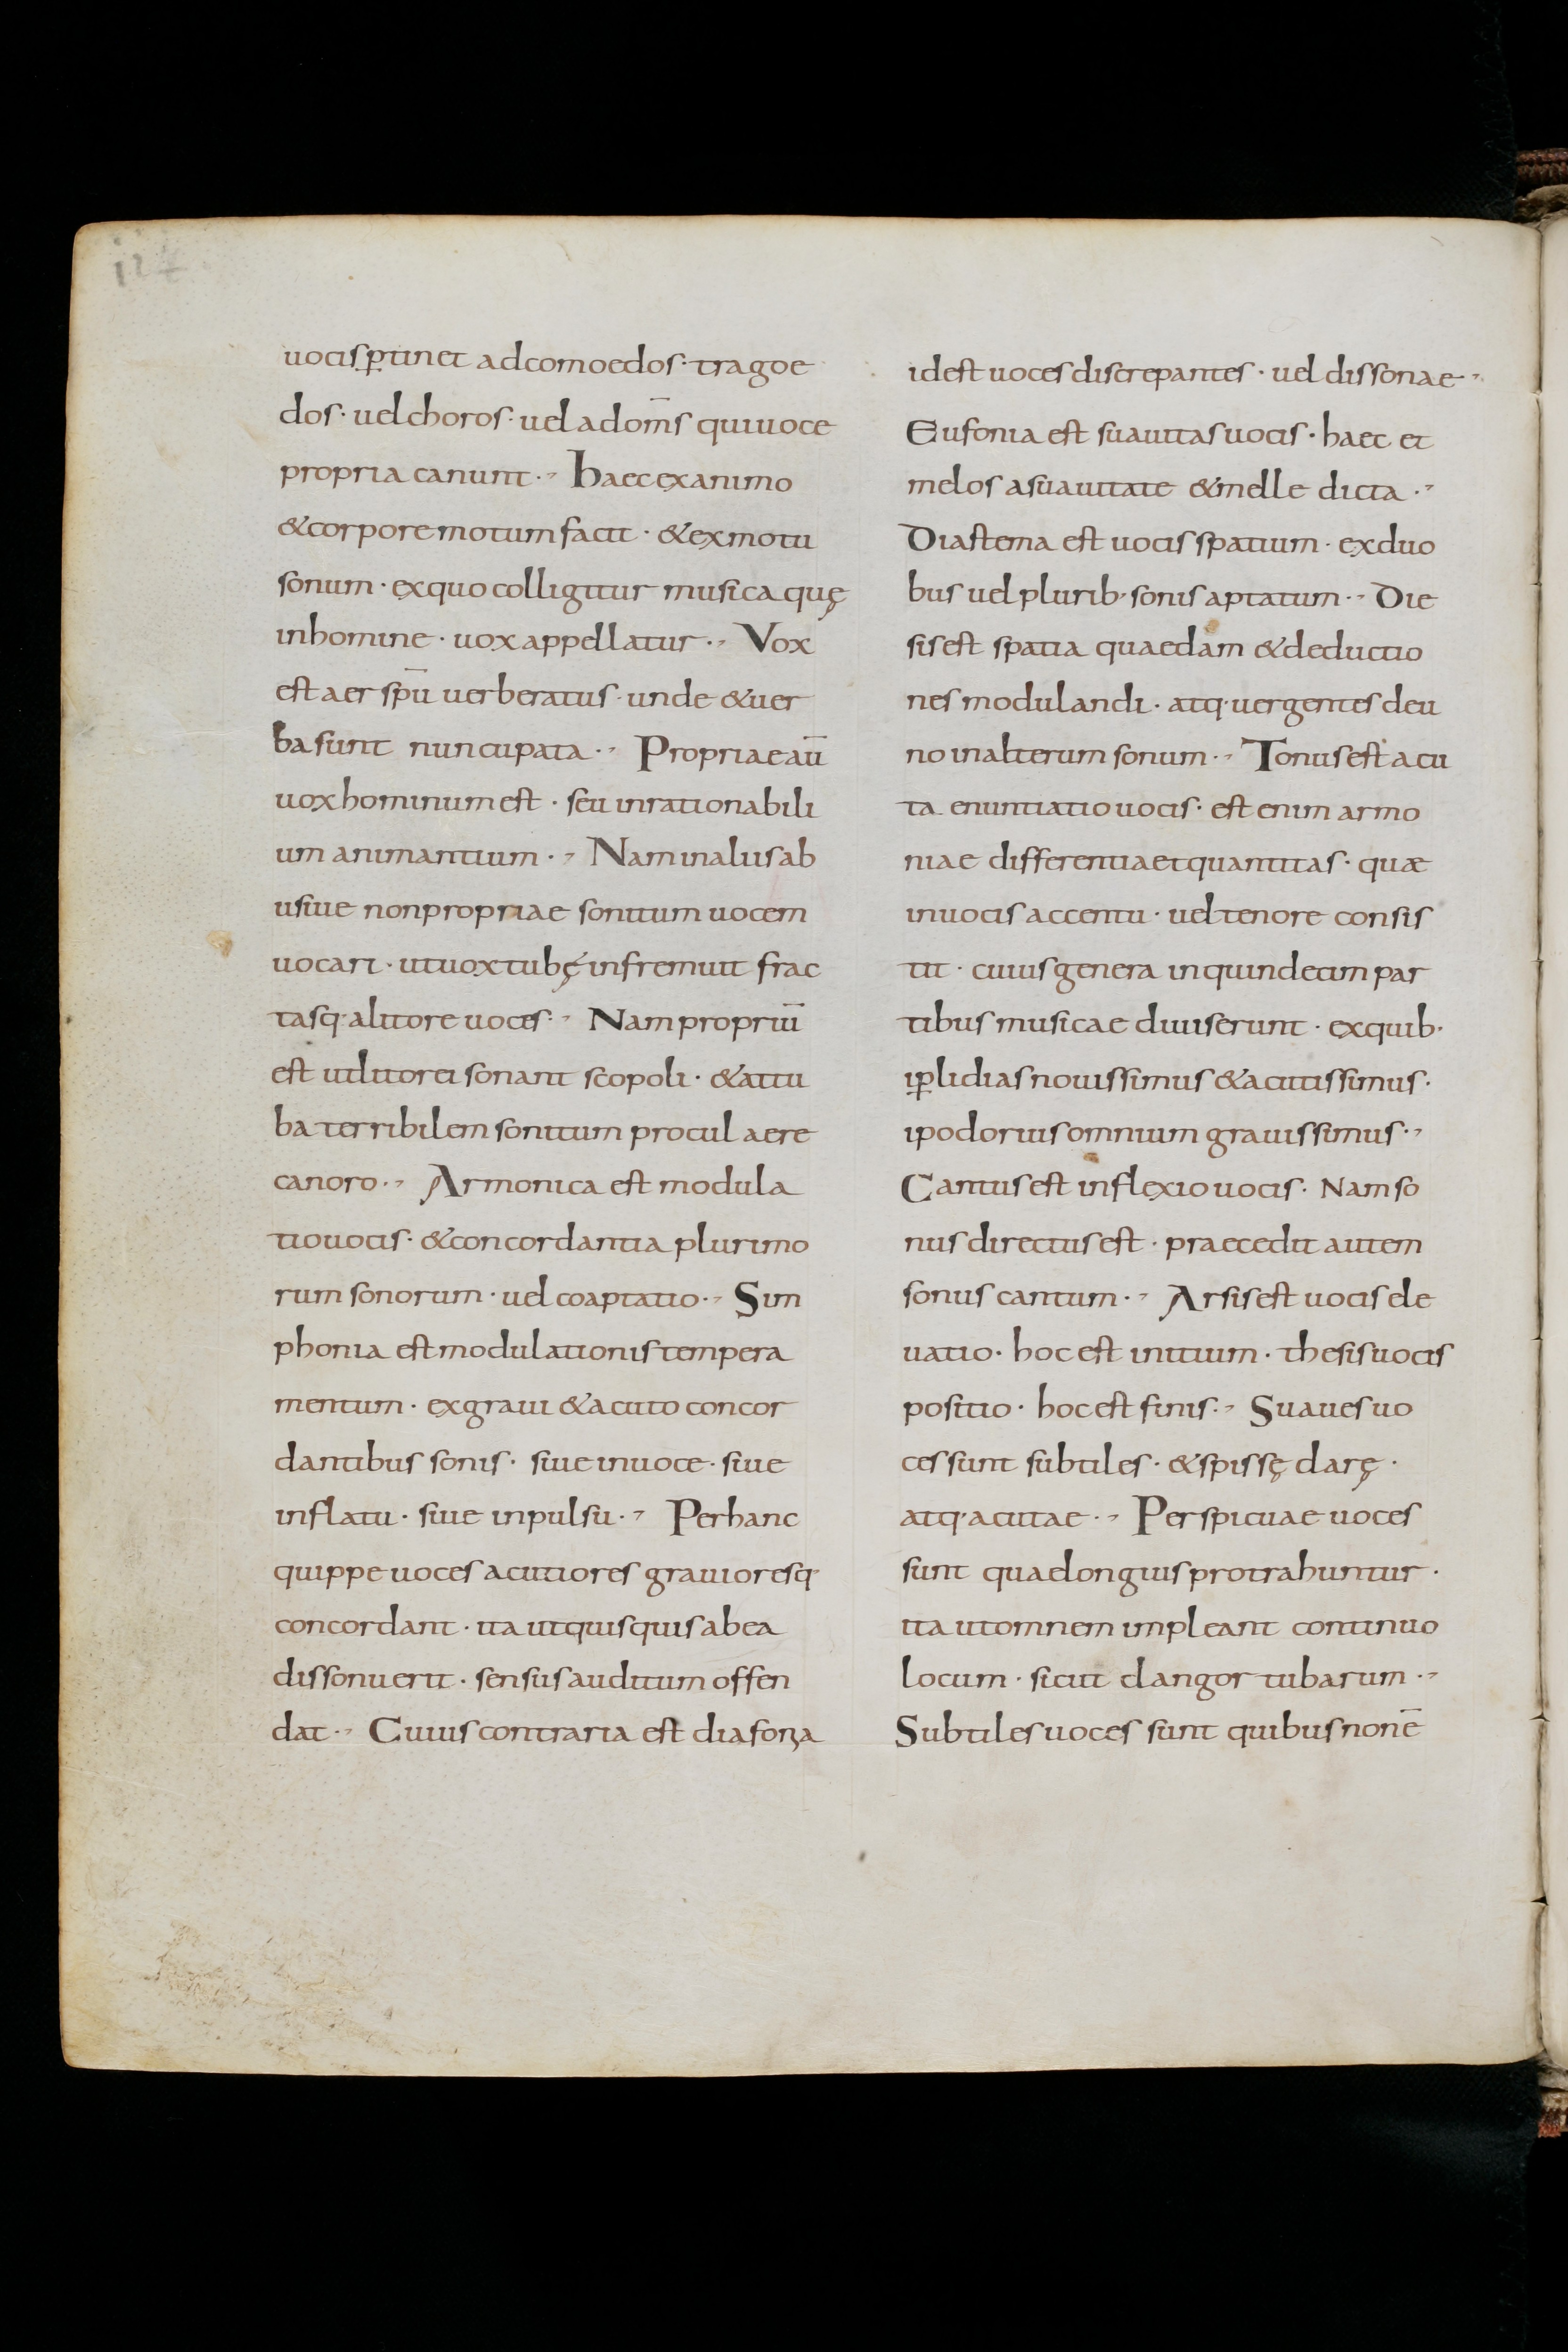 127
uocis ꝑtinet ad comoedos · tragoe
dos · uel choros · uel ad om̅s qui uoce
propria canunt · Haec ex animo
& corpore motum facit · & ex motu
sonum · ex quo colligitur musica quę
in homine · uox appellatur · Vox
est aer sp̅u uerberatus · unde & uer
ba sunt nuncupata · Propriae au̅
uox hominum est · seu inrationabili
um animantium · Nam in aliis ab
usiue non propriae sonitum uocem
uocari · ut uox tubę infremuit frac
tasq· a litore uoces · Nam propriu̅
est ut litorei sonant scopoli · & at tu
ba terribilem sonitum procul aere
canoro · Armonica est modula
tio uocis · & concordantia plurimo
rum sonorum · uel coaptatio · Sim
phonia est modulationis tempera
mentum · ex graui & acuto concor
dantibus sonis · siue in uoce · siue
in flatu · siue in pulsu · Per hanc
quippe uoces acutiores grauioresq·
concordant · ita ut quisquis ab ea
dissonuerit · sensus auditum offen
dat · Cuius contraria est diafonia
id est uoces discrepantes · uel dissonae ·
Eufonia est suauitas uocis · haec et
melos a suauitate & melle dicta ·
Diastema est uocis spatium · ex duo
bus uel plurib· sonis aptatum · Die
sis est spatia quaedam & deductio
nes modulandi · atq· uergentes de u
no in alterum sonum · Tonus est acu
ta enuntiatio uocis · est enim armo
niae differentia et quantitas · quæ
in uocis accentu · uel tenore consis
tit · cuius genera in quindecim par
tibus musicae diuiserunt · ex quib·
iꝑlidias nouissimus & acutissimus ·
ipodorius omnium grauissimus ·
Cantus est inflexio uocis · Nam so
nus directus est · praecedit autem
sonus cantum · Arsis est uocis ele
uatio · hoc est initium · thesis uocis
positio · hoc est finis · Suaues uo
ces sunt subtiles · & spissę clarę ·
atq· acutae · Perspicuae uoces
sunt quae longius protrahuntur ·
ita ut omnem impleant continuo
locum · sicut clangor tubarum ·
Subtiles uoces sunt quibus non e̅